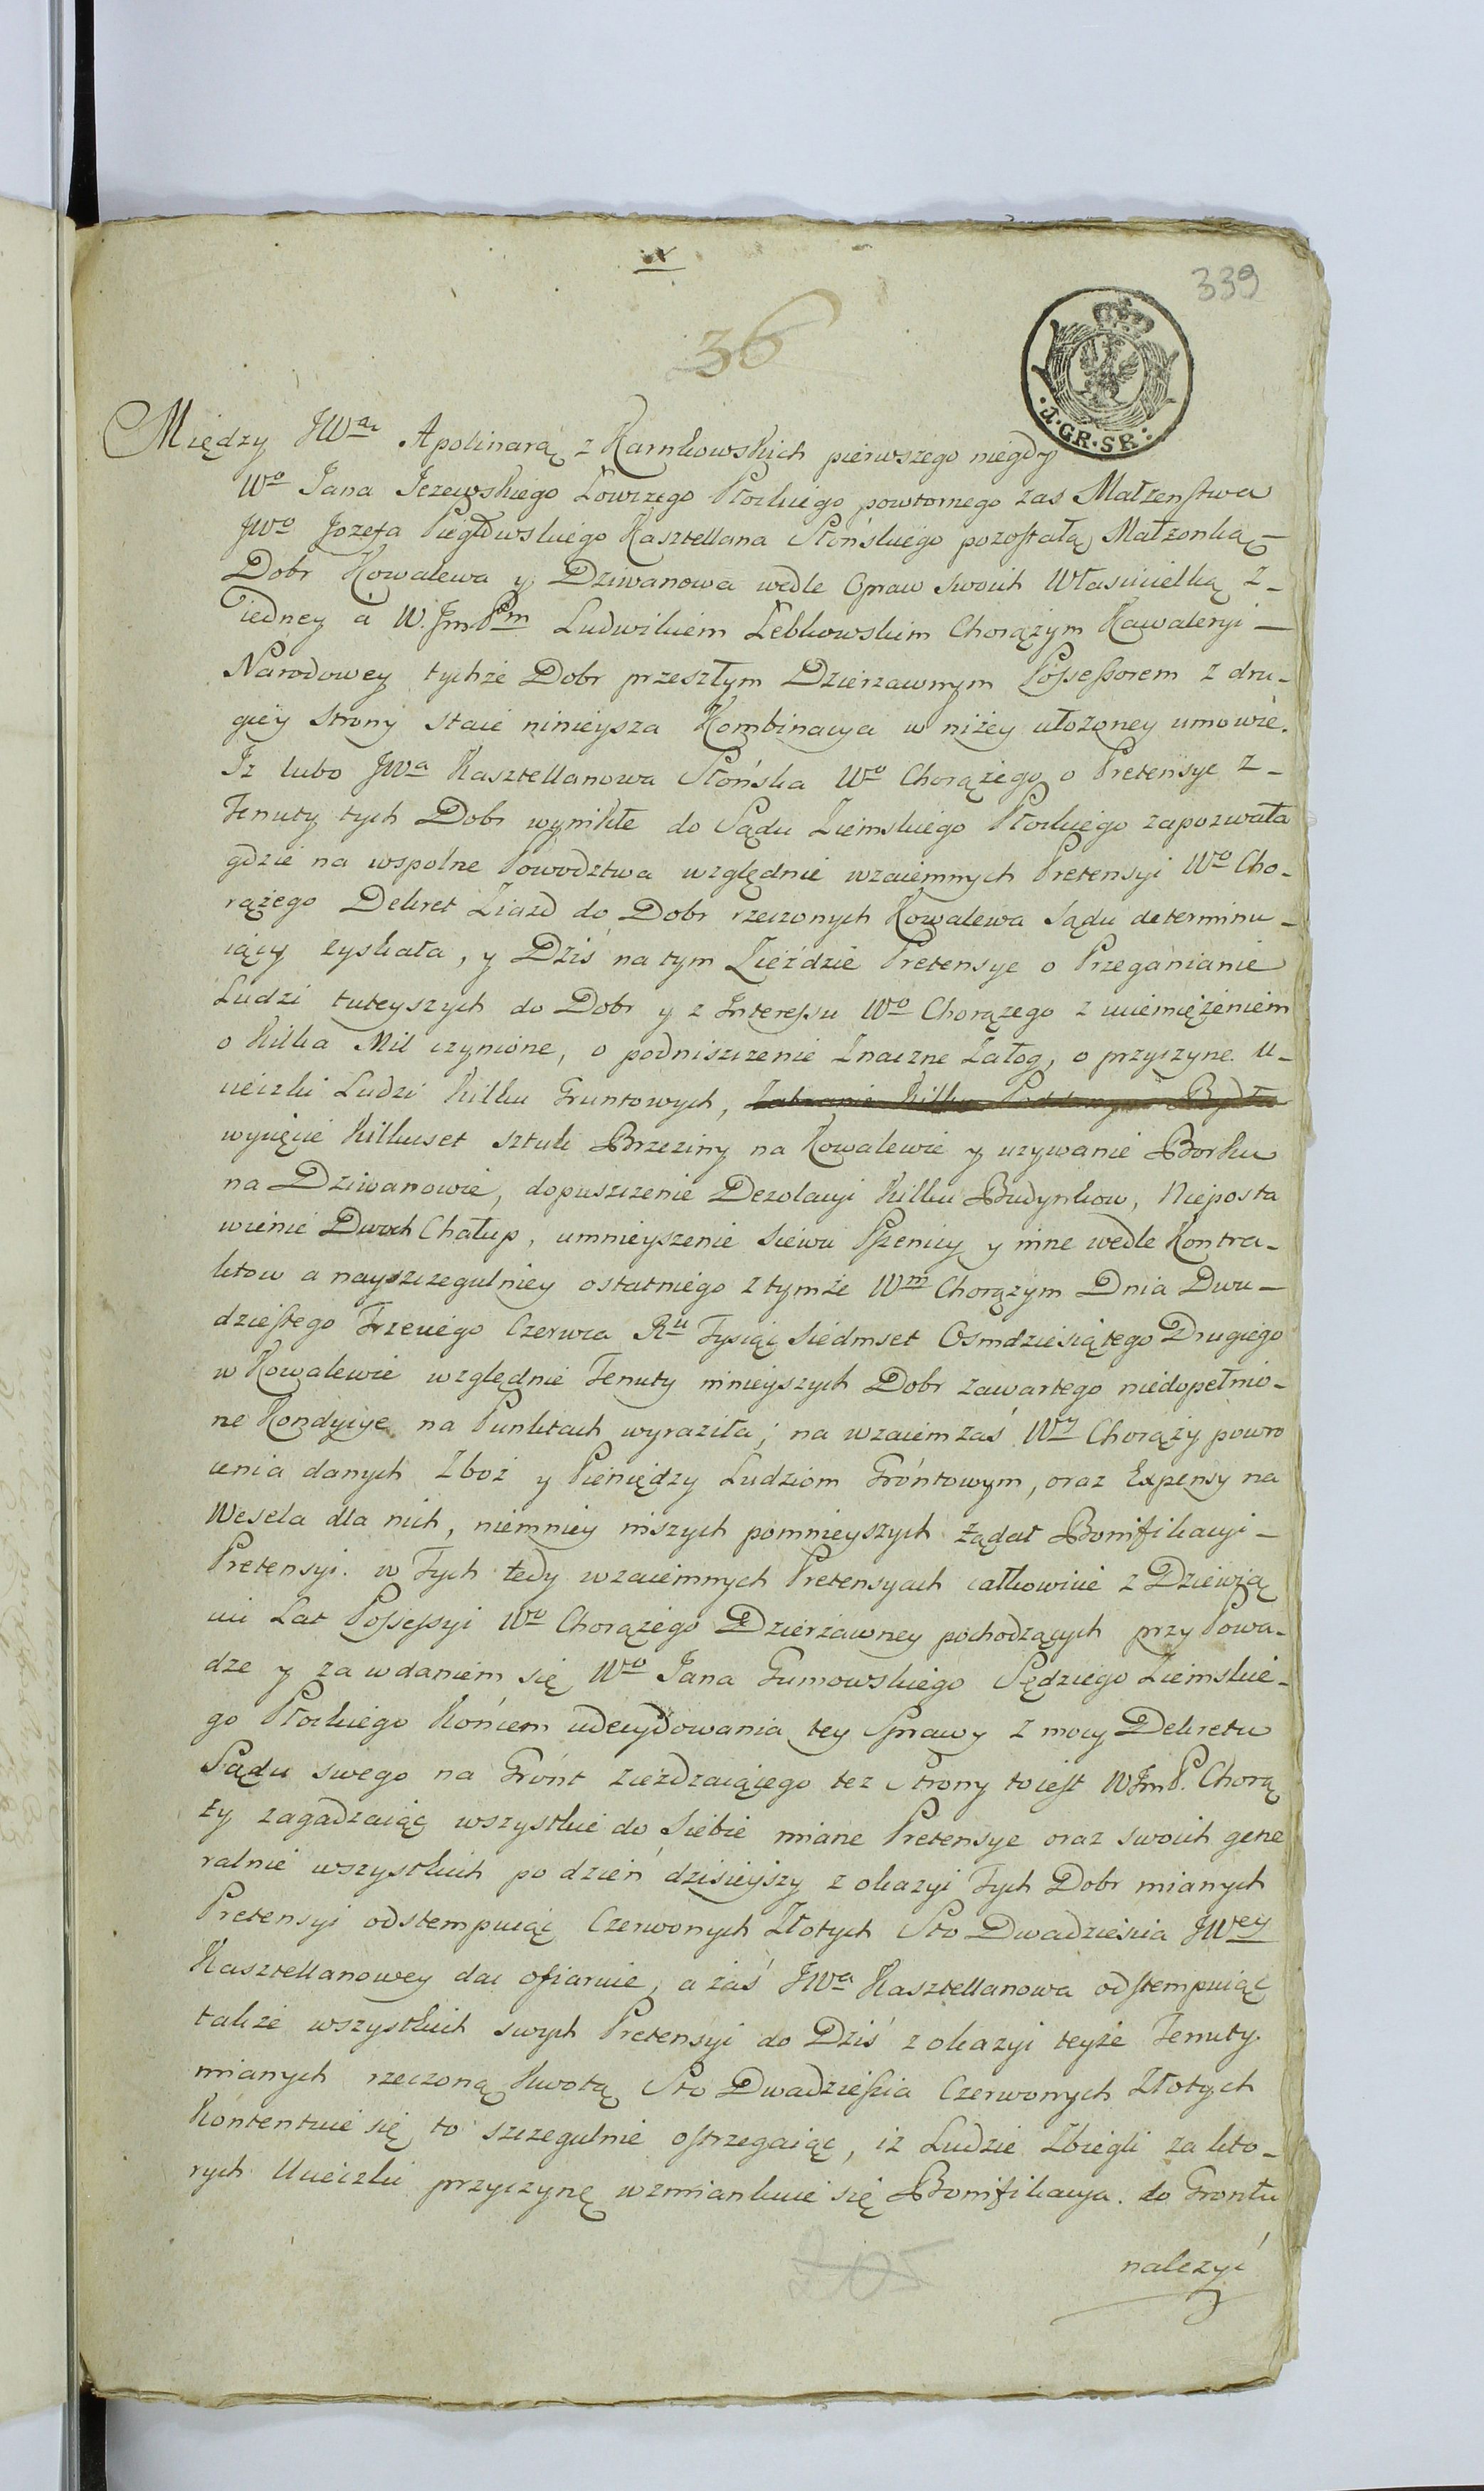 339
36
J. GR. SR.
Między JWą Apolinarą z Karnkowskich pierwszego niegdy
Wo Jana Jezewskiego Łowczego Płockiego powtornego zas Małzenstwa
JWo Jozefa Pięgłowskiego Kasztellana Słońskiego pozostałą Małzonką –
Dobr Kowalewa y Dziwanowa wedle Opraw swoich Własicielką z –
iedney a W. JmPm Ludwikiem Lebkowskim Chorążym Kawaleryi –
Narodowey tychże Dobr przeszłym Dzierzawnym Possessorem z dru-
giey strony staie ninieysza Kombinacya w niżey ułozoney umowie.
Iz lubo JWa Kasztellanowa Słońska Wo Chorążego o Pretensye z –
Tenuty tych Dobr wynikłe do Sądu Ziemskiego Płockiego zapozwała
gdzie na wspolne Powodztwa względnie wzaiemnych Pretensyi Wo Cho-
rążego Dekret Ziazd do Dobr rzeczonych Kowalewa Sądu determinu-
iący zyskała, y Dziś na tym Zieździe Pretensye o Przeganianie
Ludzi tuteyszych do Dobr y z Interessu Wo Chorązego z uciemiężeniem
o kilka Mil czynione, o podniszczenie Znaczne Załog, o przyczyne U-
cieczki Ludzi kilku Gruntowych, Zabranie kilku Poddanym Bydła
wycięcie kilkuset sztuk Brzeziny na Kowalewie y uzywanie Borku
na Dziwanowie, dopuszczenie Dezolacyi kilku Budynkow, Nieposta
wienie Dwoch Chałup, umnieyszenie Siewu Pszenicy y inne wedle Kontra-
ktow a nayszczegulniey ostatniego z tymże Wm Chorązym Dnia Dwu-
dziestego Trzeciego Czerwca Ru Tysiąc Siedmset Osmdziesiątego Drugiego
w Kowalewie względnie Tenuty ninieyszych Dobr zawartego niedopełnio-
ne Kondycye na Punktach wyraziła; na wzaiem zaś Wy Chorąży powro
cenia danych Zboż y Pieniędzy Ludziom Gróntowym, oraz Expensy na
Wesela dla nich, niemniey niszych pomnieyszych żądał Bonifikacyi –
Pretensyi. w Tych tedy wzaiemnych Pretensyach całkowicie z Dziewią
ciu Lat Possessyi Wo Chorążego Dzierżawney pochodzących przy Powa-
dze y za wdaniem się Wo Jana Gumowskiego Sędziego Ziemskie-
go Płockiego końcem udecydowania tey Sprawy z mocy Dekretu
Sądu swego na Gront zieżdzaiącego też Strony toiest WJmP. Chorą
ży zagadzaiąc wszystkie do Siebie miane Pretensye oraz swoich gene
ralnie wszystkich po dzień dzisieyszy z okazyi Tych Dobr mianych
Pretensyi odstempuiąc Czerwonych Złotych Sto Dwadziescia JWey
Kasztellanowey dac ofiaruie, a zaś JWa Kasztellanowa odstempuiąc
także wszystkich swych Pretensyi do Dziś z okazyi teyże Tenuty
mianych rzeczoną kwotą Sto Dwadziescia Czerwonych Złotych
kontentuie się to szczegulnie ostrzegaiąc, iz Ludzie Zbiegli za kto-
rych Ucieczki przyczynę wzmiankuie się Bonifikacya. do Grontu
nalezyć